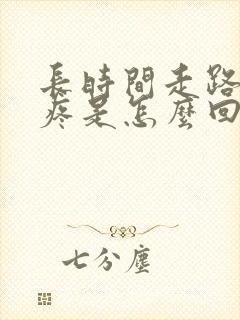 長時間走路
疼是怎麼回
七分塵